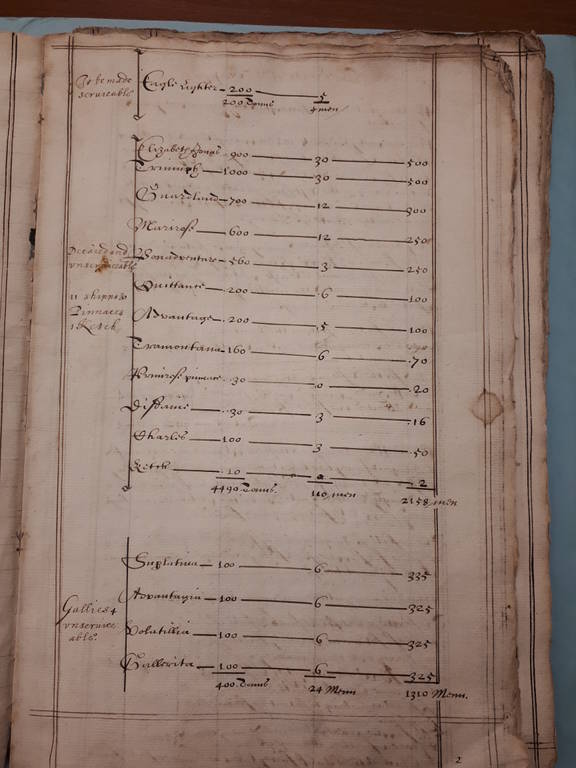 To be made
serviceable
Eagle Lighter 200 5
200 Tonns 4 men
Elizabeth Jonas 900 30 500
Triumph 1000 30 500
Guardland 700 12 300
Marirose 600 12 250
Decaied and
unserviceable
Bonadventure 560 3 250
11 shipps &
Pinnaces
1 Ketch
Quittance 200 6 100
Advantage 200 5 100
Tramontana 160 6 70
Primrose pinnace 30 0 20
Disdaine 30 3 16
Charles 100 3 50
Ketch 10 2
4490 Tonns 110 men 2158 men
Gallies 4
unservice
able
Suplatina 100 6 335
Advantagia 100 6 325
Volatillia 100 6 325
Gallerita 100 6 325
400 Tonns 24 Menn 1310 Menn.
2